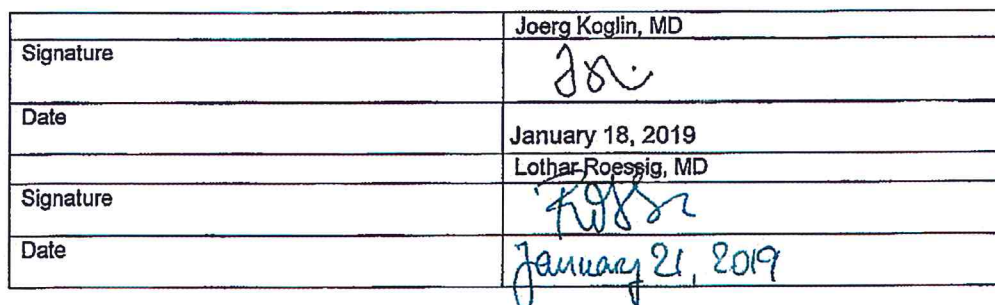 Joerg Koglin, MD
Signature
Date
January 18, 2019
Lothar Roessig, MD
Signature
Date January 21, 2019